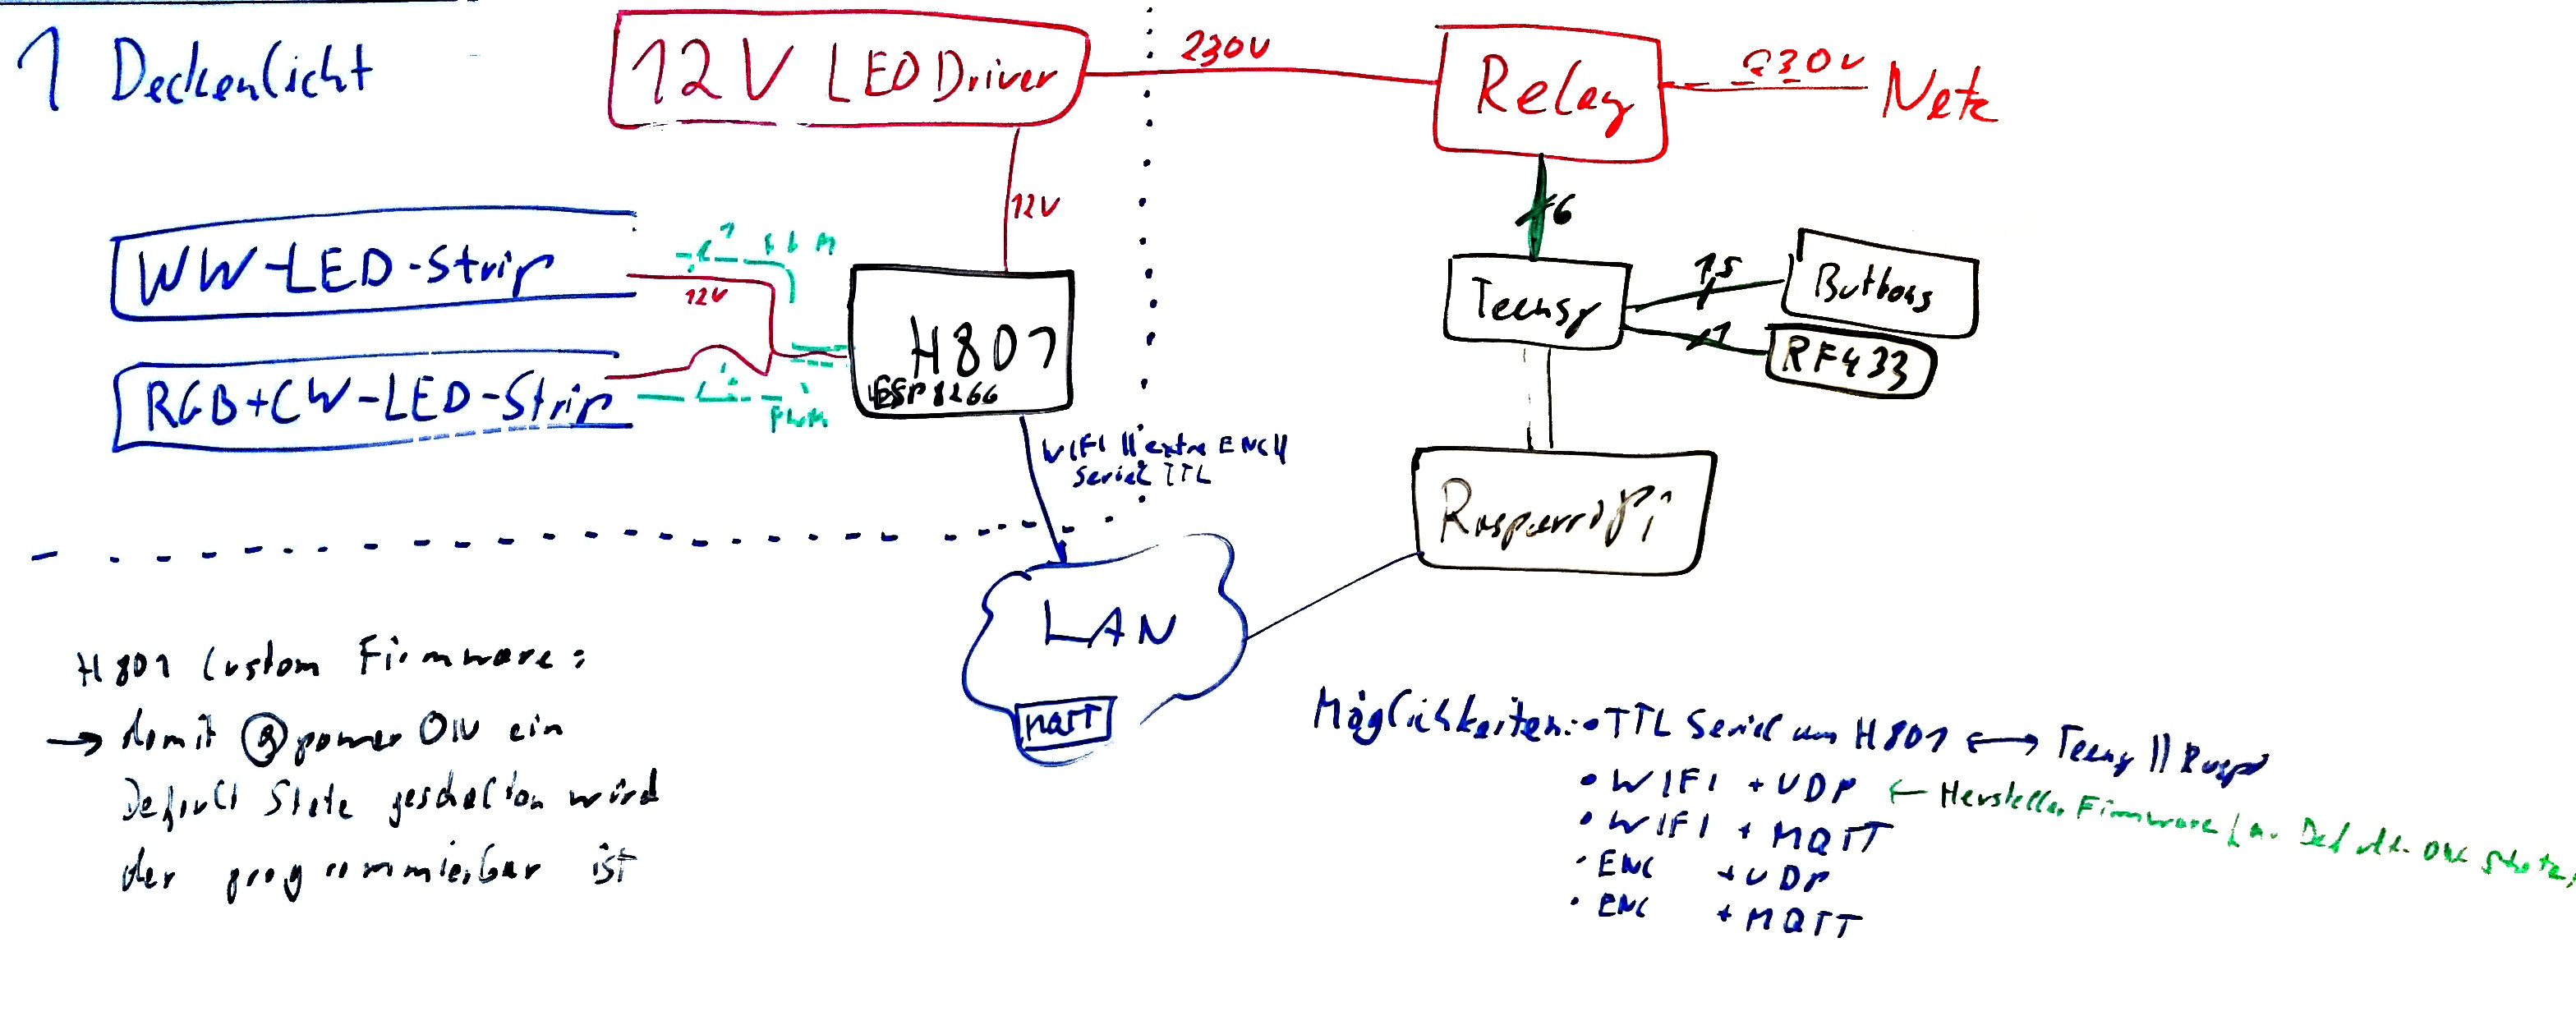 1 Deckenlicht
12V LED Driver
230V
Relay
230V
Netz
12V
6
WW-LED-Strip
12V
H801
ESP8266
Teensy
1,5
Buttons
1
RF433
RGB+CW-LED-Strip
PWM
WIFI || extra ENC ||
Seriel TTL
LAN
MQTT
H801 Custom Firmware:
→ damit @ power ON ein
Default State geschalten wird
der programmierbar ist
Möglichkeiten: • TTL Seriel am H801 ↔ Teensy || Raspi
• WIFI + UDP ← Hersteller Firmware
• WIFI + MQTT
• ENC + UDP
• ENC + MQTT